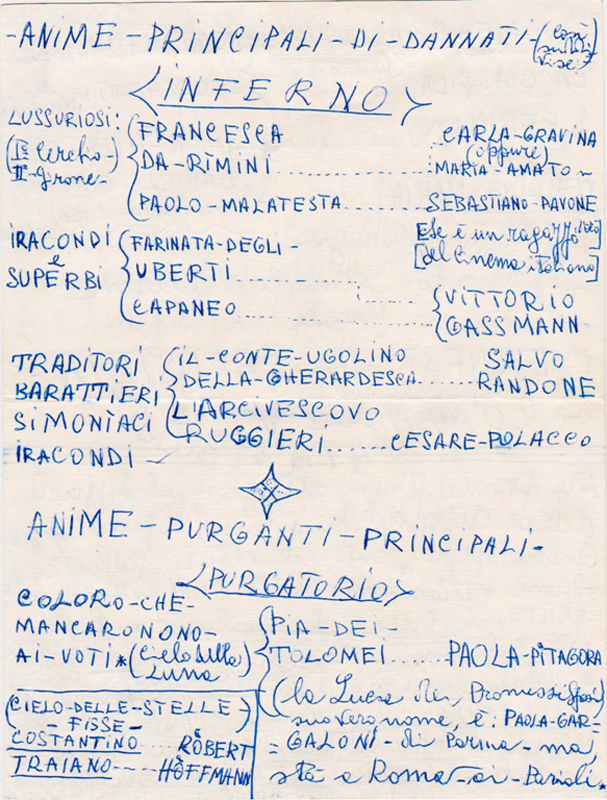 -ANIME-PRINCIPALI-DI-DANNATI-(Così
sulli
Vise)
INFERNO
LUSSURIOSI:
(Iº Cerchio-)
II-girone-
FRANCESCA
DA-RIMINI
CARLA-GRAVINA
(oppure)
MARIA-AMATO-
PAOLO-MALATESTA........ SEBASTIANO-PAVONE
[Ese è un ragazzo
del Cinema italiano]
IRACONDI
e
SUPERBI
FARINATA-DEGLI-
UBERTI
CAPANEO
VITTORIO
GASSMANN
TRADITORI
BARATTIERI
SIMONIACI
IRACONDI
IL-CONTE-UGOLINO
DELLA-GHERARDESCA......
SALVO
RANDONE
L'ARCIVESCOVO
RUGGIERI......CESARE-POLACCO
ANIME-PURGANTI-PRINCIPALI-
PURGATORIO
COLORO-CHE-
MANCARONONO-
AI-VOTI*(Cielo della
Luna)
PIA-DEI-
TOLOMEI......PAOLA-PITAGORA
(la Lucia dei Promessi Sposi
suo vero nome, è: PAOLA-GAR-
=GALONI-di Parma-ma,
stà a Roma-ai-Parioli.
(CIELO-DELLE-STELLE
-FISSE-)
COSTANTINO.... ROBERT
TRAIANO---- HOFFMANN